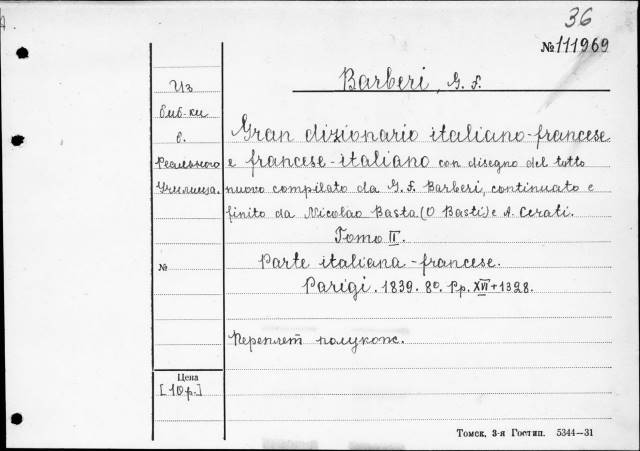 36
№111969
Barberi, G. F.
Из
биб-ки
в.
Реального
Училища.
Gran dizionario italiano-francese
e francese-italiano con disegno del tutto
nuovo compilato da G. F. Barberi, continuato e
finito da Nicolao Basta (O Basti) e A. Cerati.
Tomo II.
№
Parte italiana-francese.
Parigi. 1839. 8º. Pp. XVI+1328.
Переплет полукож.
Цена
[10 р.]
Томск, 3-я Гостип. 5344—31